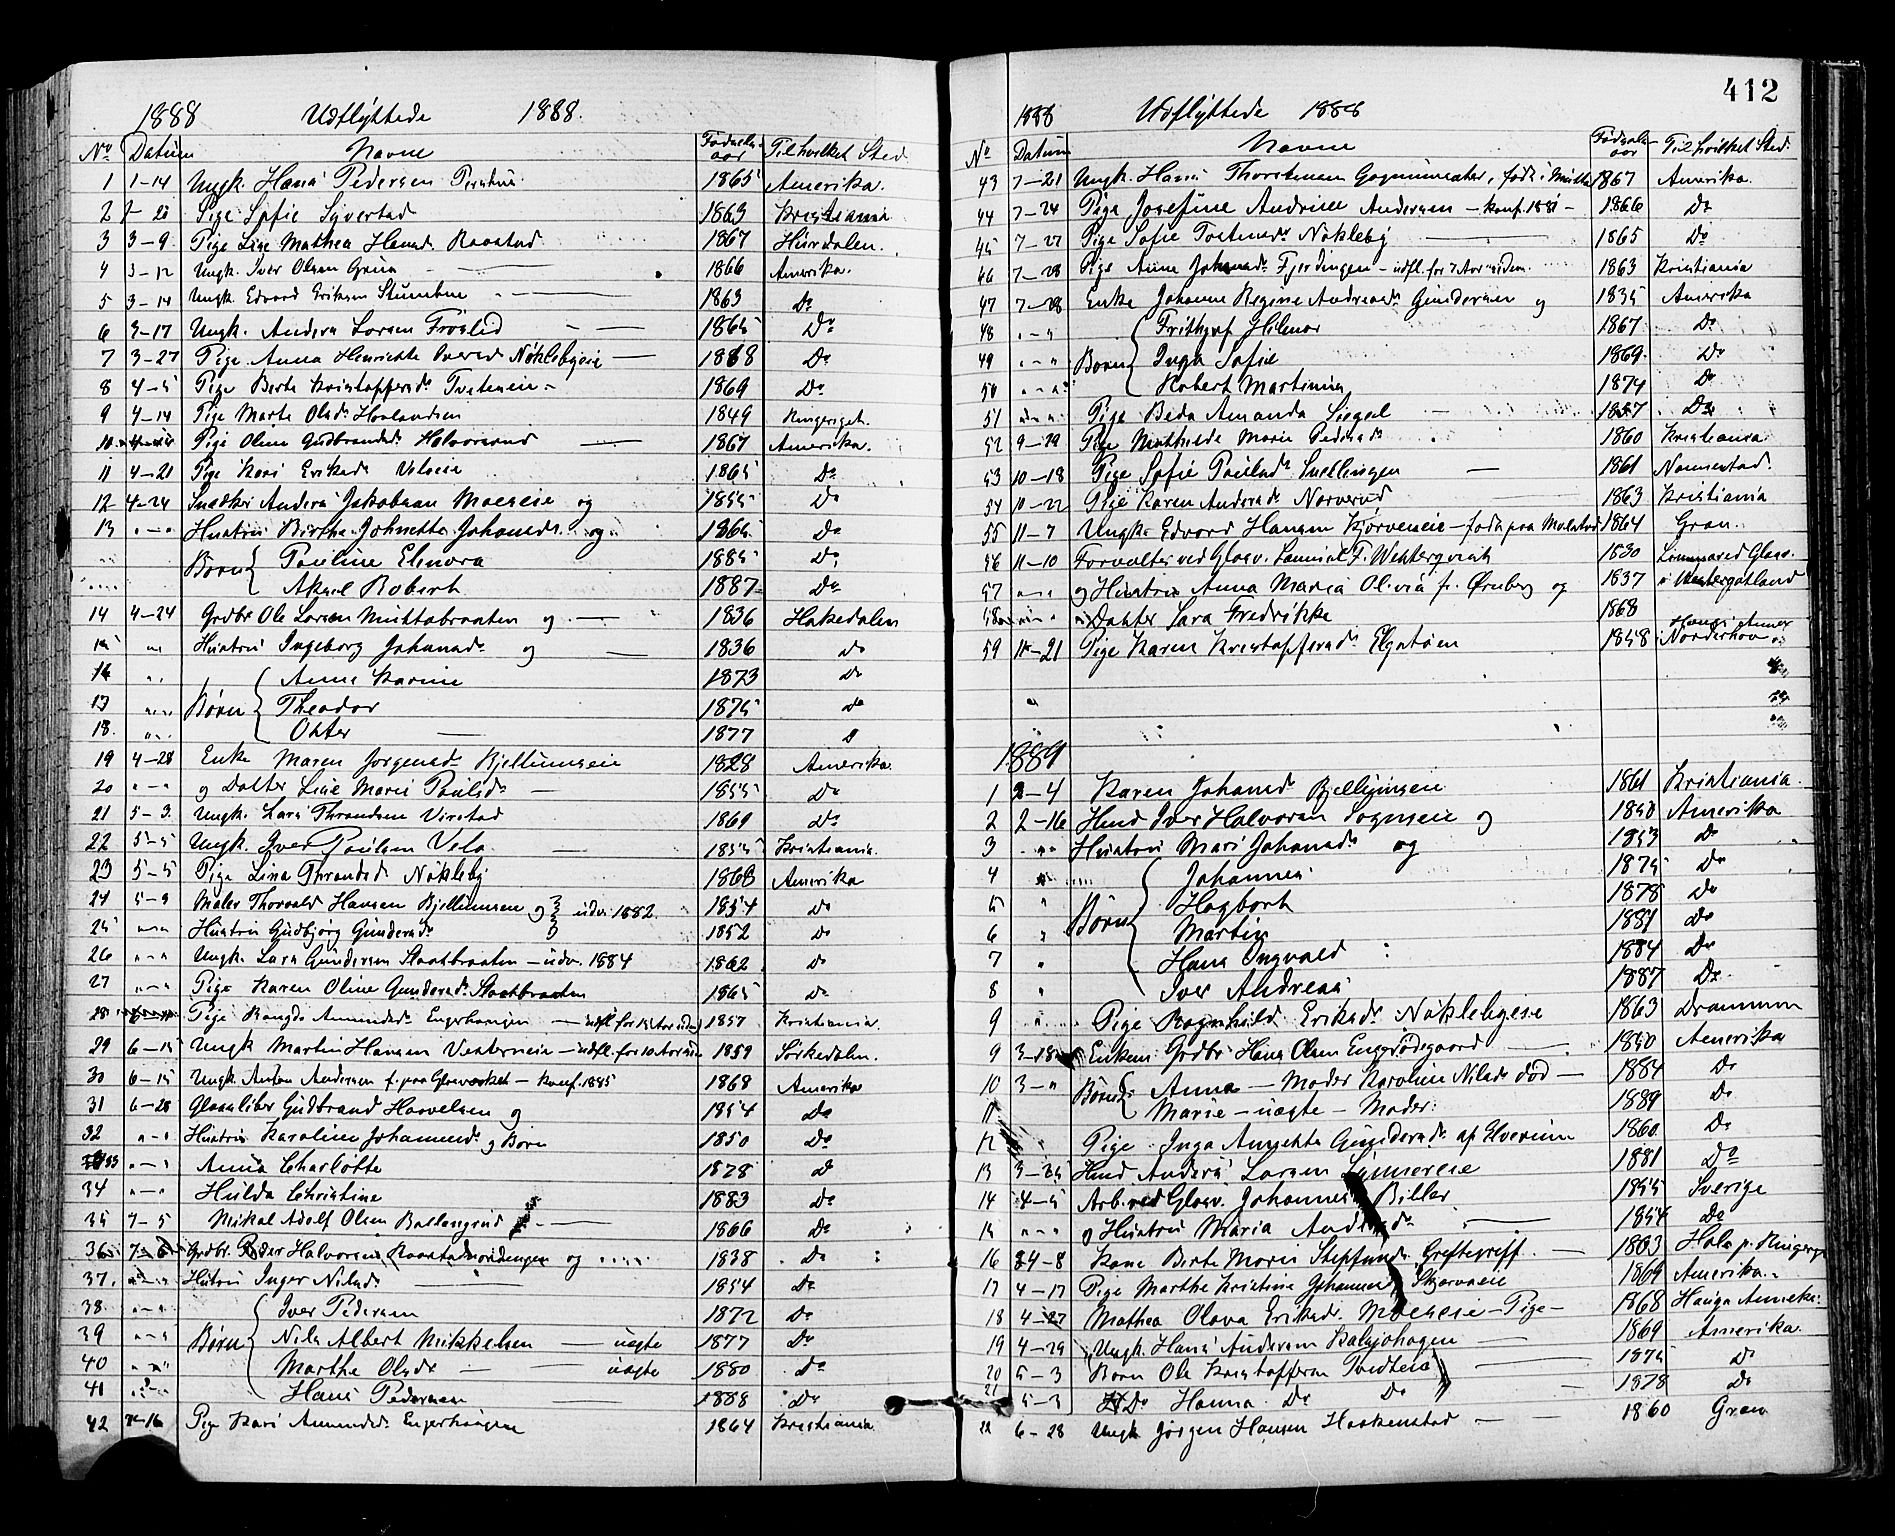 1888 Udflÿttede 1888.
No Datum Navne Fødsels-aar Til hvilket Sted.
1 1-14 Ungk. Hans Pedersen 1865 Amerika.
2 1-20 Pige Sofie Sÿverstad 1863 Kristiania
3 3-9 Pige Lise Mathea Hansd. Raastad 1867 Hurdalen.
4 3-12 Ungk. Iver Olsen Grua 1866 Amerika.
5 3-14 Ungk. Edvard Eriksen Stumbne 1863 Do
6 3-17 Ungk. Anders Larsen Frøslid 1865 Do
7 3-27 Pige Anna Henriette Iversd Nøklebyeie 1868 Do
8 4-5 Pige Berte Kristoffersd. Tveteneie 1869 Do
9 4-14 Pige Marte Olsd. 1849 Ringeriget.
10 Pige Oline Gudbrandsd. Halvorsrud 1867 Amerika.
11 4-21 Pige Kari Eriksd. Veloeie 1865 Do
12 4-24 Snedker Anders Jakobsen Moeneie og 1855 Do
13 "-" Hustru Birthe Johnette Johansd. og 1865 Do
Børn { Pauline Elenora 1885 Do
Aksel Robert 1887 Do
14 4-24 Grdbr Ole Larsen Muttabraaten og 1836 Hakedalen
15 Hustru Ingeborg Johansd. og 1836 Do
16 Anne Karine 1873 Do
17 Børn { Theodor 1875 do
18. Otter 1877 D
19 4-28 Enke Maren Jørgensd. Bjellumseie 1828 Amerika.
20 "-" og Datter Lise Marie Paulsd. 1855 Do
21 5-3. Ungk. Lars Throndsen Virstad 1869 Do
22 5-5 Ungk. Iver Paulsen Velo 1855 Kristiania.
23 5-5 Pige Lina Throndsd. Nøkleby 1868 Amerika
24 5-9 Maler Thorvald Hansen Bjellumseie og } udv. 1882. 1854 do
25 "-" Hustru Gudbjørg Gundersd. 1852 do
26 "-" Ungk. Lars Gundersen Slaatbraaten - udv. 1884 1862 Do
27 "-" Pige Karen Oline Gundersd. Slaatbraaten 1865 Do
28 Pige Rangdi Amundsd. Engerhaugen - udfl. for 13 Aar siden 1857 Kristiania.
29 6-15 Ungk Martin Hansen Vesterneie - udfl. for 10 Aar siden 1859 Sørkedalen.
30 6-15 Ungk. Anton Andersen f. paa Glasværket - konf. 1885 1868 Amerika
31 6-28 Glassliber Gudbrand Haavelsen og 1854 Do
32 "-" Hustru Karoline Johannesd. og Børn 1850 Do
33 "-" Anna Charlotte 1878 D
34 "-" Hulda Christine 1883 Do
35 7-5 Mikal Adolf Olsen Ballangrud 1866 Do
36 7-6 Grdbr. Peder Halvorsen og 1838 Do
37. "-" Hustru Inger Nilsd. 1854 do
38. "-" Iver Pedersen 1872 Do
39 "-" Børn { Nils Albert Mikkelsen — uægte 1877 Do
40 "-" Marthe Olsd. — uægte 1880 do
41 "-" Hans Pedersen 1888 Do
42 7-16 Pige Kari Amundsd. Engerhaugen 1864 Kristiania
412
1888 Udflÿttede 1888
No Datum Navne Fødsels-aar Til hvilket Sted.
43 7-21 Ungk. Hans Thorstensen født i 1867 Amerika.
44 7-24 Pige Josefine Andrine Andersen - konf. 1881 - 1866 Do
45 7-27 Pige Sofie Tostensd. Nøkleby 1865 Do
46 7-28 Pige Anne Johansd. Fjerdingen - udfl. for 7 Aar siden. 1863 Kristiania
47 7-28 Enke Johanne Regine Andreasd. Gundersen og 1835 Amerika
48 Frithjof Hilmar 1867 Do
49 Børn { Inga Sofie 1869. Do
50 Robert Martinius 1874 Do
51 Pige Beda Amanda 1857 Do
52 9-29 Pige Mathilde Marie Pedersd. 1860 Kristiania.
53 10-18 Pige Sofie Paulsd. Snellingen 1861 Nannestad.
54 10-22 Pige Karen Andersd. Narverud 1863 Kristiania
55 11-7 Ungk. Edvard Hansen Kjørveneie - født paa Molstad 1864 Gran.
56 11-10 Forvalter ved Glasv. Samuel F. Westerqvist 1830 Limmared Glasv.
57 og Hustru Anna Maria Olivia f. Ørnberg og 1837 i Westergotland
58 Datter Sara Fredrikke 1868
59 11-21 Pige Karen Kristoffersd. Elgstøen 1858 Haugs Annex Norderhov
1889
1 2-4 Karen Johansd Bjellumseie 1861 Kristiania.
2 2-16 Husd Iver Halvorsen Sogneeie og 1850 Amerika
3 Hustru Mari Johansd. og 1853 D
4 Johannes 1875 Do
5 Børn { Hagbart 1878 Do
6 Martin 1881 Do
7 Hans Ingvald 1884 Do
8 Iver Andreas 1887 Do
9 Pige Ragnhild Eriksd. Nøklebyeie 1863 Drammen
9 3-18 Enkem. Grdbr. Hans Olsen Engerødegaard 1850 Amerika
10 3-" Børn { Anna — Moder Karoline Nilsd. død — 1884 Do
11 Marie — uægte — Moder: 1889 Do
12 Pige Inga Annette Gundersd. af Elverum 1860 Do
13 3-25 Husd Anders Larsen 1881 Do
14 4-5 Arb. ved Glasv. Johannes Biller 1855 Sverige
15 "-" og Hustru Maria Andersd. 1854 Do
16 4-8 Kone Berte Marie Steffensd. Greftegreff. 1803 Hole p. Ringerige
17 4-17 Pige Marthe Kristine Johannesd. Skjerveeie 1869 Amerika.
18 4-27 Mathea Olava Eriksd. Moeneie - Pige - 1868 Hauga Annex.
19 4-29 Ungk. Hans Andersen 1869 Amerika.
20 5-3 Barn Ole Kristoffersen Tvedteie 1875 Do
21 5-3 Do Hanna Do Do 1878 Do
22 6-28 Ungk Jørgen Hansen Haakenstad 1860 Gran